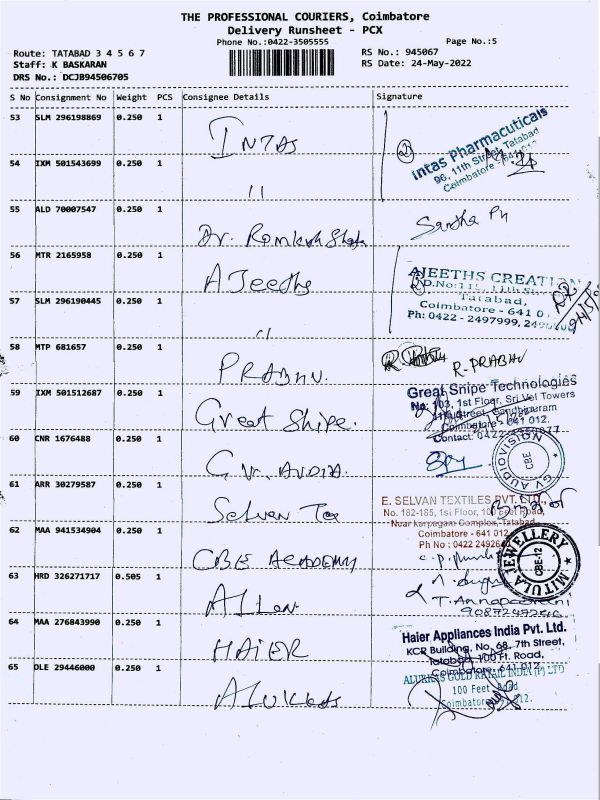 THE PROFESSIONAL COURIERS, Coimbatore
Delivery Runsheet - PCX
Phone No.:0422-3505555
Page No.:5
Route: TATABAD 3 4 5 6 7
RS No.: 945067
Staff: K BASKARAN
RS Date: 24-May-2022
DRS No.: DCJB94506705
S No Consignment No Weight PCS Consignee Details Signature
53 SLM 296198869 0.250 1
INTAS
Intas Pharmaceuticals
96, 11th Street, Tatabad
Coimbatore - 641 012
54 IXM 501543699 0.250 1
11
55 ALD 70007547 0.250 1
Dr.
Santha
56 MTR 2165958 0.250 1
AJeeths
AJEETHS CREATION
D.No:11
Tatabad,
Coimbatore - 641 0
Ph: 0422 - 2497999,
57 SLM 296190445 0.250 1
11
58 MTP 681657 0.250 1
PRABHU.
R-PRABHU
59 IXM 501512687 0.250 1
Great Snipe.
Great Snipe Technologies
No: 103, 1st Floor, Sri Vel Towers
11th Street, Gandhipuram
Coimbatore - 641 012.
Contact: 0422
60 CNR 1676488 0.250 1
G.V. AUDIO.
GV AUDIOVISION
CBE
61 ARR 30279587 0.250 1
Selvan Tex
E. SELVAN TEXTILES PVT. LTD.,
No. 182-185, 1st Floor, 100 Feet Road,
Near karpagam Complex, Tatabad,
Coimbatore - 641 012
Ph No : 0422 24926
62 MAA 941534904 0.250 1
CBE ACADEMY
MITULA JEWELLERY
CBE-12
63 HRD 326271717 0.505 1
ALLEN
64 MAA 276843990 0.250 1
HAIER
Haier Appliances India Pvt. Ltd.
KCR Building, No. 68, 7th Street,
Tatabad, 100 Ft. Road,
Coimbatore- 641 012.
65 DLE 29446000 0.250 1
Alukkas
ALUKKAS GOLD RETAIL INDIA (P) LTD
100 Feet Road
Coimbatore